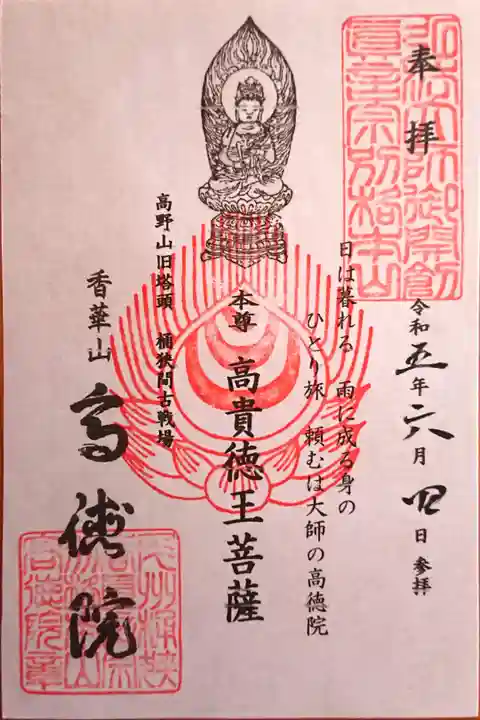 奉拝
令和五年六月四日参拝
日は暮れる 雨に成る身の
ひとり旅 頼むは大師の高徳院
本尊 高貴徳王菩薩
高野山旧塔頭 桶狭間古戦場
香華山
高徳院
弘法大師御開創
眞言宗別格本山